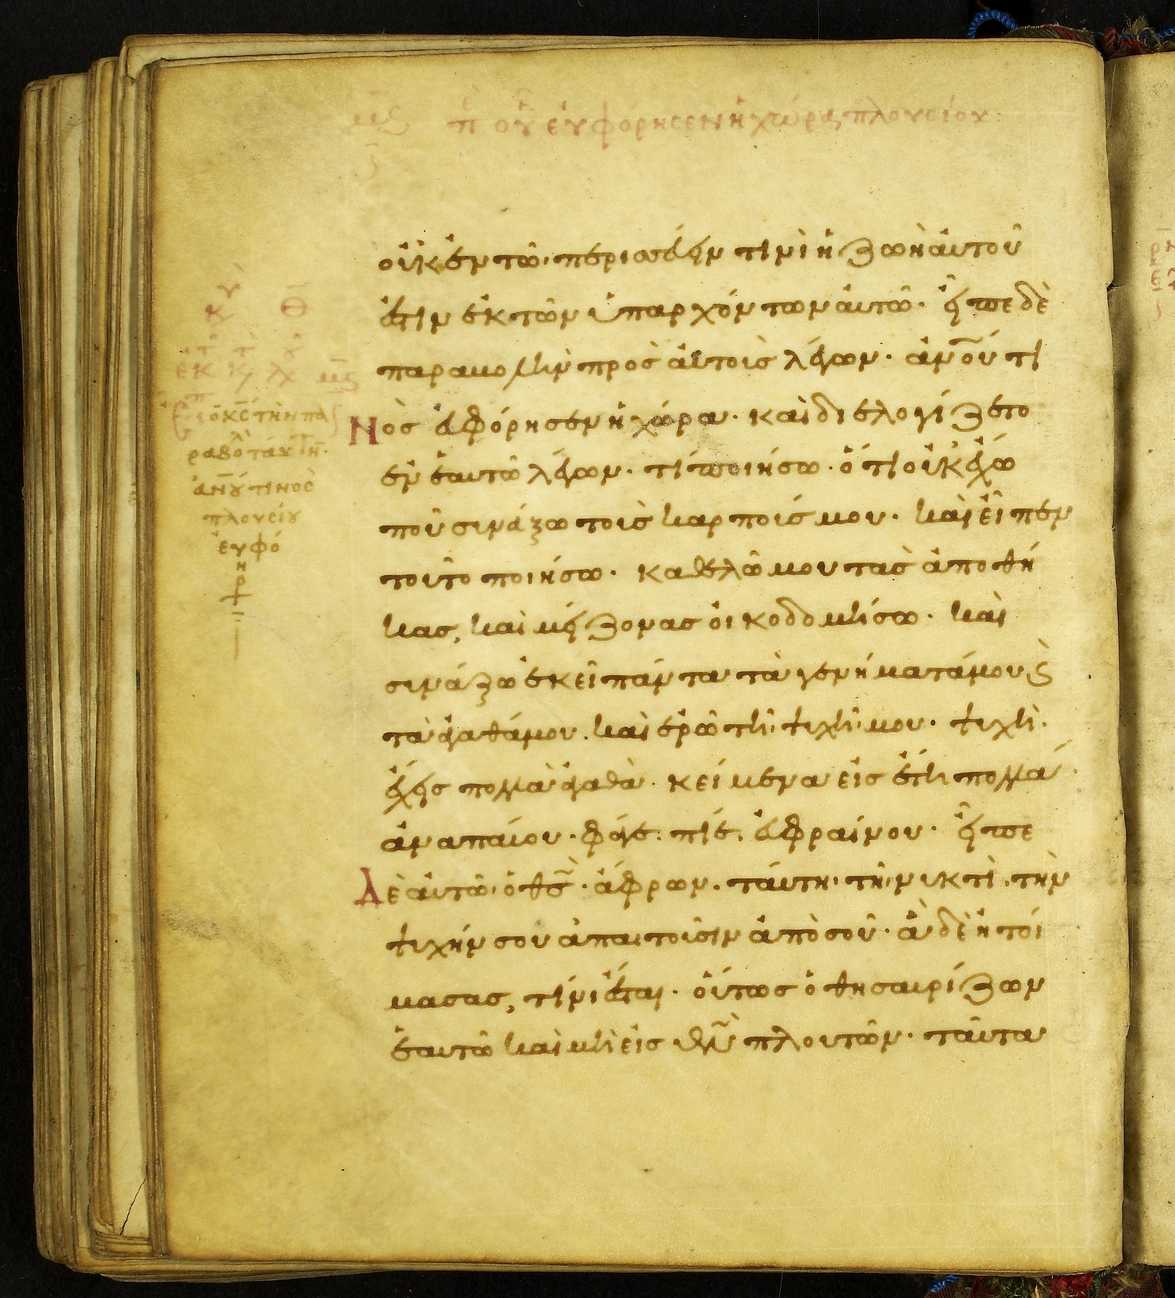 π οὗ εὐφόρησεν ἡ χώρα πλουσίου
οὐκ ἐν τῶ περισσεύειν τινὶ ἡ ζωὴ αὐτοῦ
ἐστιν ἐκ τῶν ὑπαρχόντων αὐτῶ· εἶπε δὲ
παραβολὴν πρὸς αὐτοὺς λέγων· ἀνου τι
νὸς εὐφόρησεν ἡ χώρα· καὶ διελογίζετο
ἐν ἑαυτῶ λέγων· τί ποιήσω· ὅτι οὐκ ἔχω
ποῦ συνάξω τοὺς καρπούς μου· καὶ εἶπεν
τοῦτο ποιήσω· καθελῶ μου τὰς ἀποθή
κας, καὶ μείζονας οἰκοδομήσω· καὶ
συνάξω ἐκεῖ πάντα τὰ γενήματά μου ϗ
τὰ ἀγαθά μου. καὶ ἐρῶ τῆ ψυχῆ μου· ψυχὴ·
ἔχεις πολλὰ ἀγαθὰ· κείμενα εἰς ἔτη πολλά·
ἀναπαύου· φάγε· πίε· εὐφραίνου· εἶπε
Δὲ αὐτῶ· ὁ θς· ἄφρων· ταύτη· τῆ νυκτὶ· τὴν
ψυχήν σου ἀπαιτοῦσιν ἀπὸ σοῦ· ἃ δὲ ἡτοί
μασας, τίνι ἔσται· οὕτως ὁ θησαυρίζων
ἑαυτῶ καὶ μὴ εἰς θν πλουτῶν· ταῦτα
πλουσίου
εὐφό